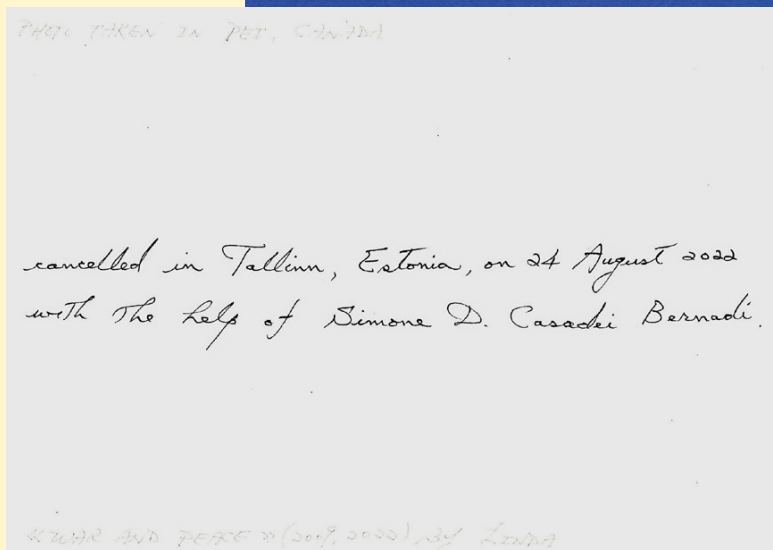 PHOTO TAKEN IN PEI, CANADA
cancelled in Tallinn, Estonia, on 24 August 2022
with the help of Simone D. Casadei Bernadi.
« WAR AND PEACE » (2009, 2022) by LINDA